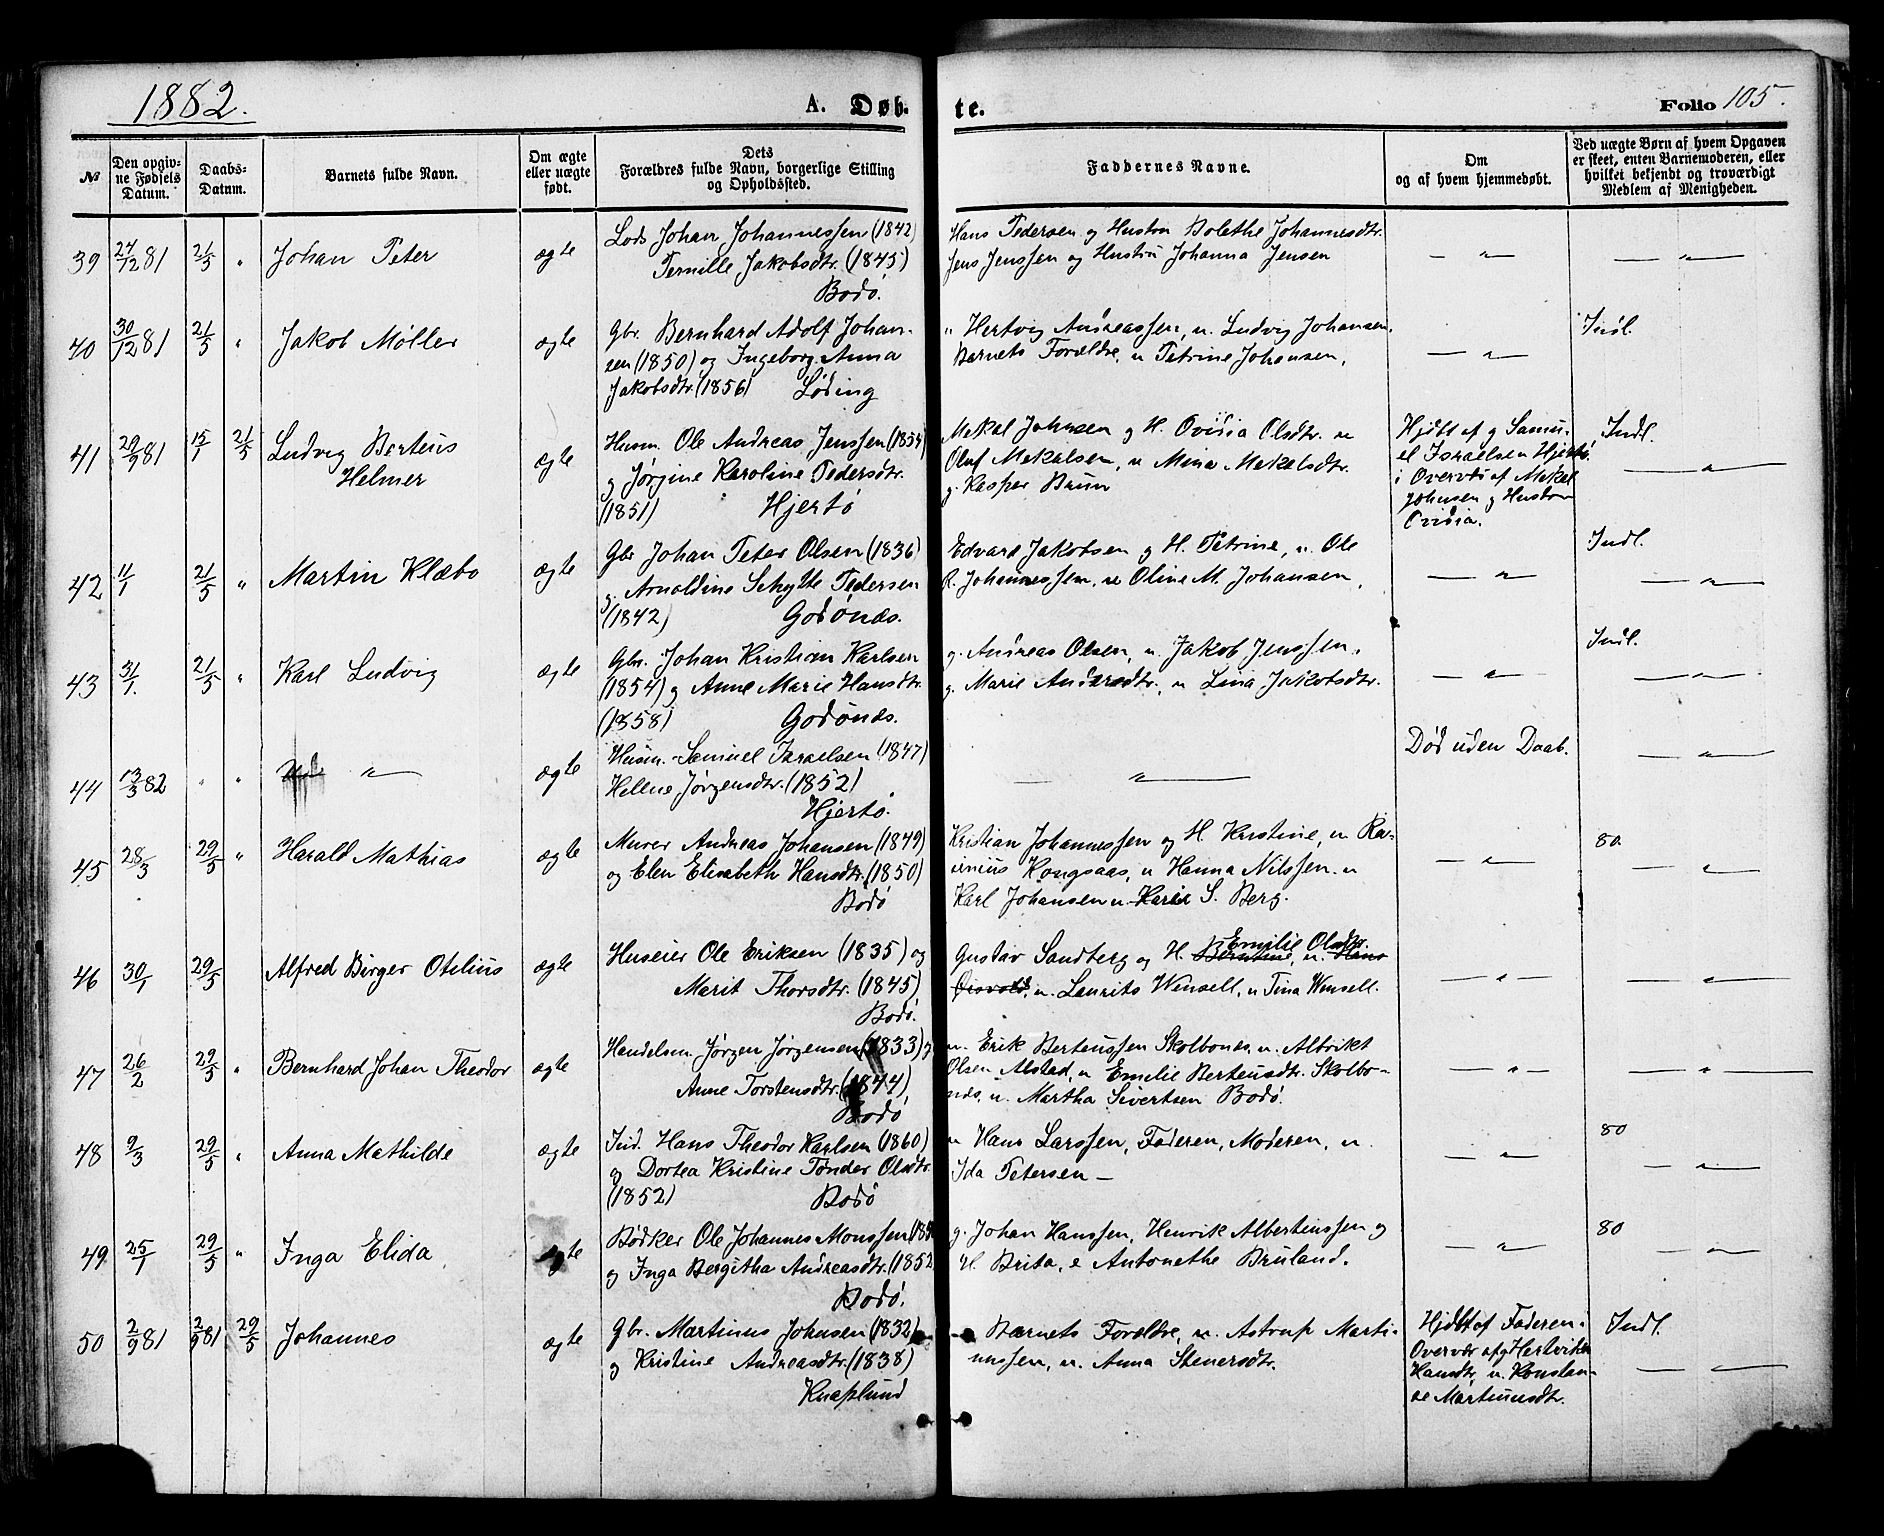 1882.
A. Døb-
te.
Folio 105.
№
Den opgiv-
ne Fødsels
Datum.
Daabs-
Datum.
Barnets fulde Navn.
Om ægte
eller uægte
født.
Dets
Forældres fulde Navn, borgerlige Stilling
og Opholdssted.
Faddernes Navne.
Om
og af hvem hjemmedøbt.
Ved uægte Børn af hvem Opgaven
er skeet, enten Barnemoderen, eller
hvilket bekjendt og troværdigt
Medlem af Menigheden.
39 24/12 81 21/5 " Johan Peter ægte
Lods Johan Johannessen (1842)
Pernille Jakobsdtr. (1845)
Bodø.
Hans Pedersen og Hustru Bolethe Johannesdtr.
Jens Jenssen og Hustru Johanna Jensen
— " —
— " —
40 30/12 81 21/5 " Jakob Møller ægte
Gbr. Bernhard Adolf Johan-
sen (1850) og Ingeborg Anna
Jakobsdtr. (1856) Løding
u. Hertvig Andreassen, u. Ludvig Johansen.
Barnets Forældre, u Petrine Johansen.
— " —
Indl.
41 29/9 81 15/1 21/5 Ludvig Berteus
Helmer
ægte
Husm. Ole Andreas Jenssen (1854)
og Jørgine Karoline Pedersdtr.
(1851) Hjertø
Mekal Johnsen og H. Ovidia Olsdtr. u
Oluf Mekalsen, u Mina Mekelsdtr.
g. Kasper Brun
Hjdbt af g Samu-
el Israelsen Hjertø.
i Overvær af Mekal
Johnsen og Hustru
Ovidia.
Indl.
— " —
42 11/1 21/5 " Martin Klæbo ægte
Gbr Johan Peter Olsen (1836)
g. Arnoldine Schytte Pedersen
(1842) Godønes.
Edvard Jakobsen og H. Petrine, u. Ole
R. Johannessen, u Oline M. Johansen.
— " —
Indl.
— " —
43 3/1. 21/5 " Karl Ludvig ægte
Gbr. Johan Kristian Karlsen
(1854) og Anne Marie Hansdtr.
(1858) Godønes.
g. Andreas Olsen, u. Jakob Jenssen,
g. Marie Andersdtr., u Lina Jakobsdtr.
— " —
Indl.
— " —
44 13/3 82 " " — " — ægte
Husm. Samuel Israelsen (1847)
Helene Jørgensdtr. (1852)
Hjertø.
— " —
Død uden Daab.
— " —
45 28/3 29/5 " Harald Mathias ægte
Murer Andreas Johansen (1849)
og Elen Elisabeth Hansdtr. (1850)
Bodø
Kristian Johannessen og H Kristine, u. Ras-
mus Kongsaas, u Hanna Nilssen u
Karl Johansen u. Karie S. Berg.
— " —
80.
— " —
46 30/1 29/5 Alfred Birger Otelius ægte
Huseier Ole Eriksen (1835) og
Marit Thorsdtr. (1845)
Bodø.
Emilie Olsdtr.
Gustav Sandberg og H. Berntine, u. Hans
Øisvold, u. Laurits Wensell, u Tina Wensell.
— " —
— " —
47 26/2 29/5 " Bernhard Johan Theodor ægte
Handelsm Jørgen Jørgensen (1833) g
Anne Torstensdtr. (1844)
Bodø
u. Erik Berteussen Skolbones, u. Albrikt
Olsen Alstad, u Emelie Berteusdtr. Skolbo-
nes, u. Martha Sivertsen Bodø.
— " —
— " —
48 9/3 29/5 " Anna Mathilde ægte
Ind. Hans Theodor Karlsen (1860)
og Dortea Kristine Tønder Olsdtr.
(1852) Bodø
u Hans Larssen, Faderen, Moderen, u.
Ida Petersen —
— " —
80
— " —
49 25/1 29/5 " Inga Elida ægte
Bødker Ole Johannes Monssen
og Inga Bergitha Andreasdtr. (1852
Bodø.
g. Johan Hanssen, Henrik Albertinssen og
H. Brita, e Antonethe Bruland.
— " —
80
— " —
50 2/9 81 2/9 81 29/5 Johannes ægte
Gbr. Martinus Johnsen (1832)
og Kristine Andreasdtr. (1838)
Knaplund
Barnets Forældre, u. Astrup Marti-
nussen, u. Anna Stenersdtr.
Hjdbt af Faderen i
Overvær af g Hertvikke
Hansdtr, u. Konstan-
se Martinusdtr.
Indl.
— " —